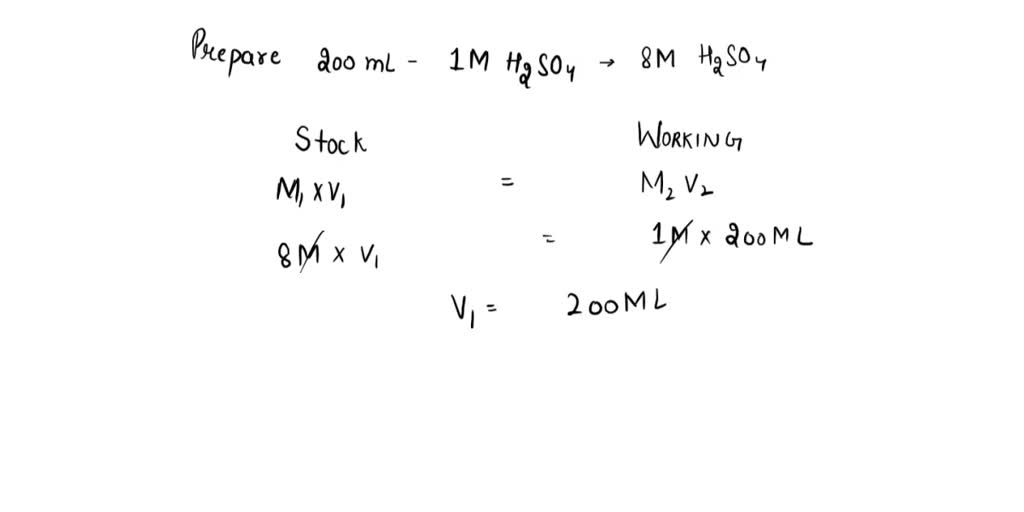 Prepare 200 mL - 1M H₂SO₄ → 8M H₂SO₄
Stock WORKING
M₁ x V₁ = M₂ V₂
8M x V₁ = 1M x 200ML
V₁ = 200ML